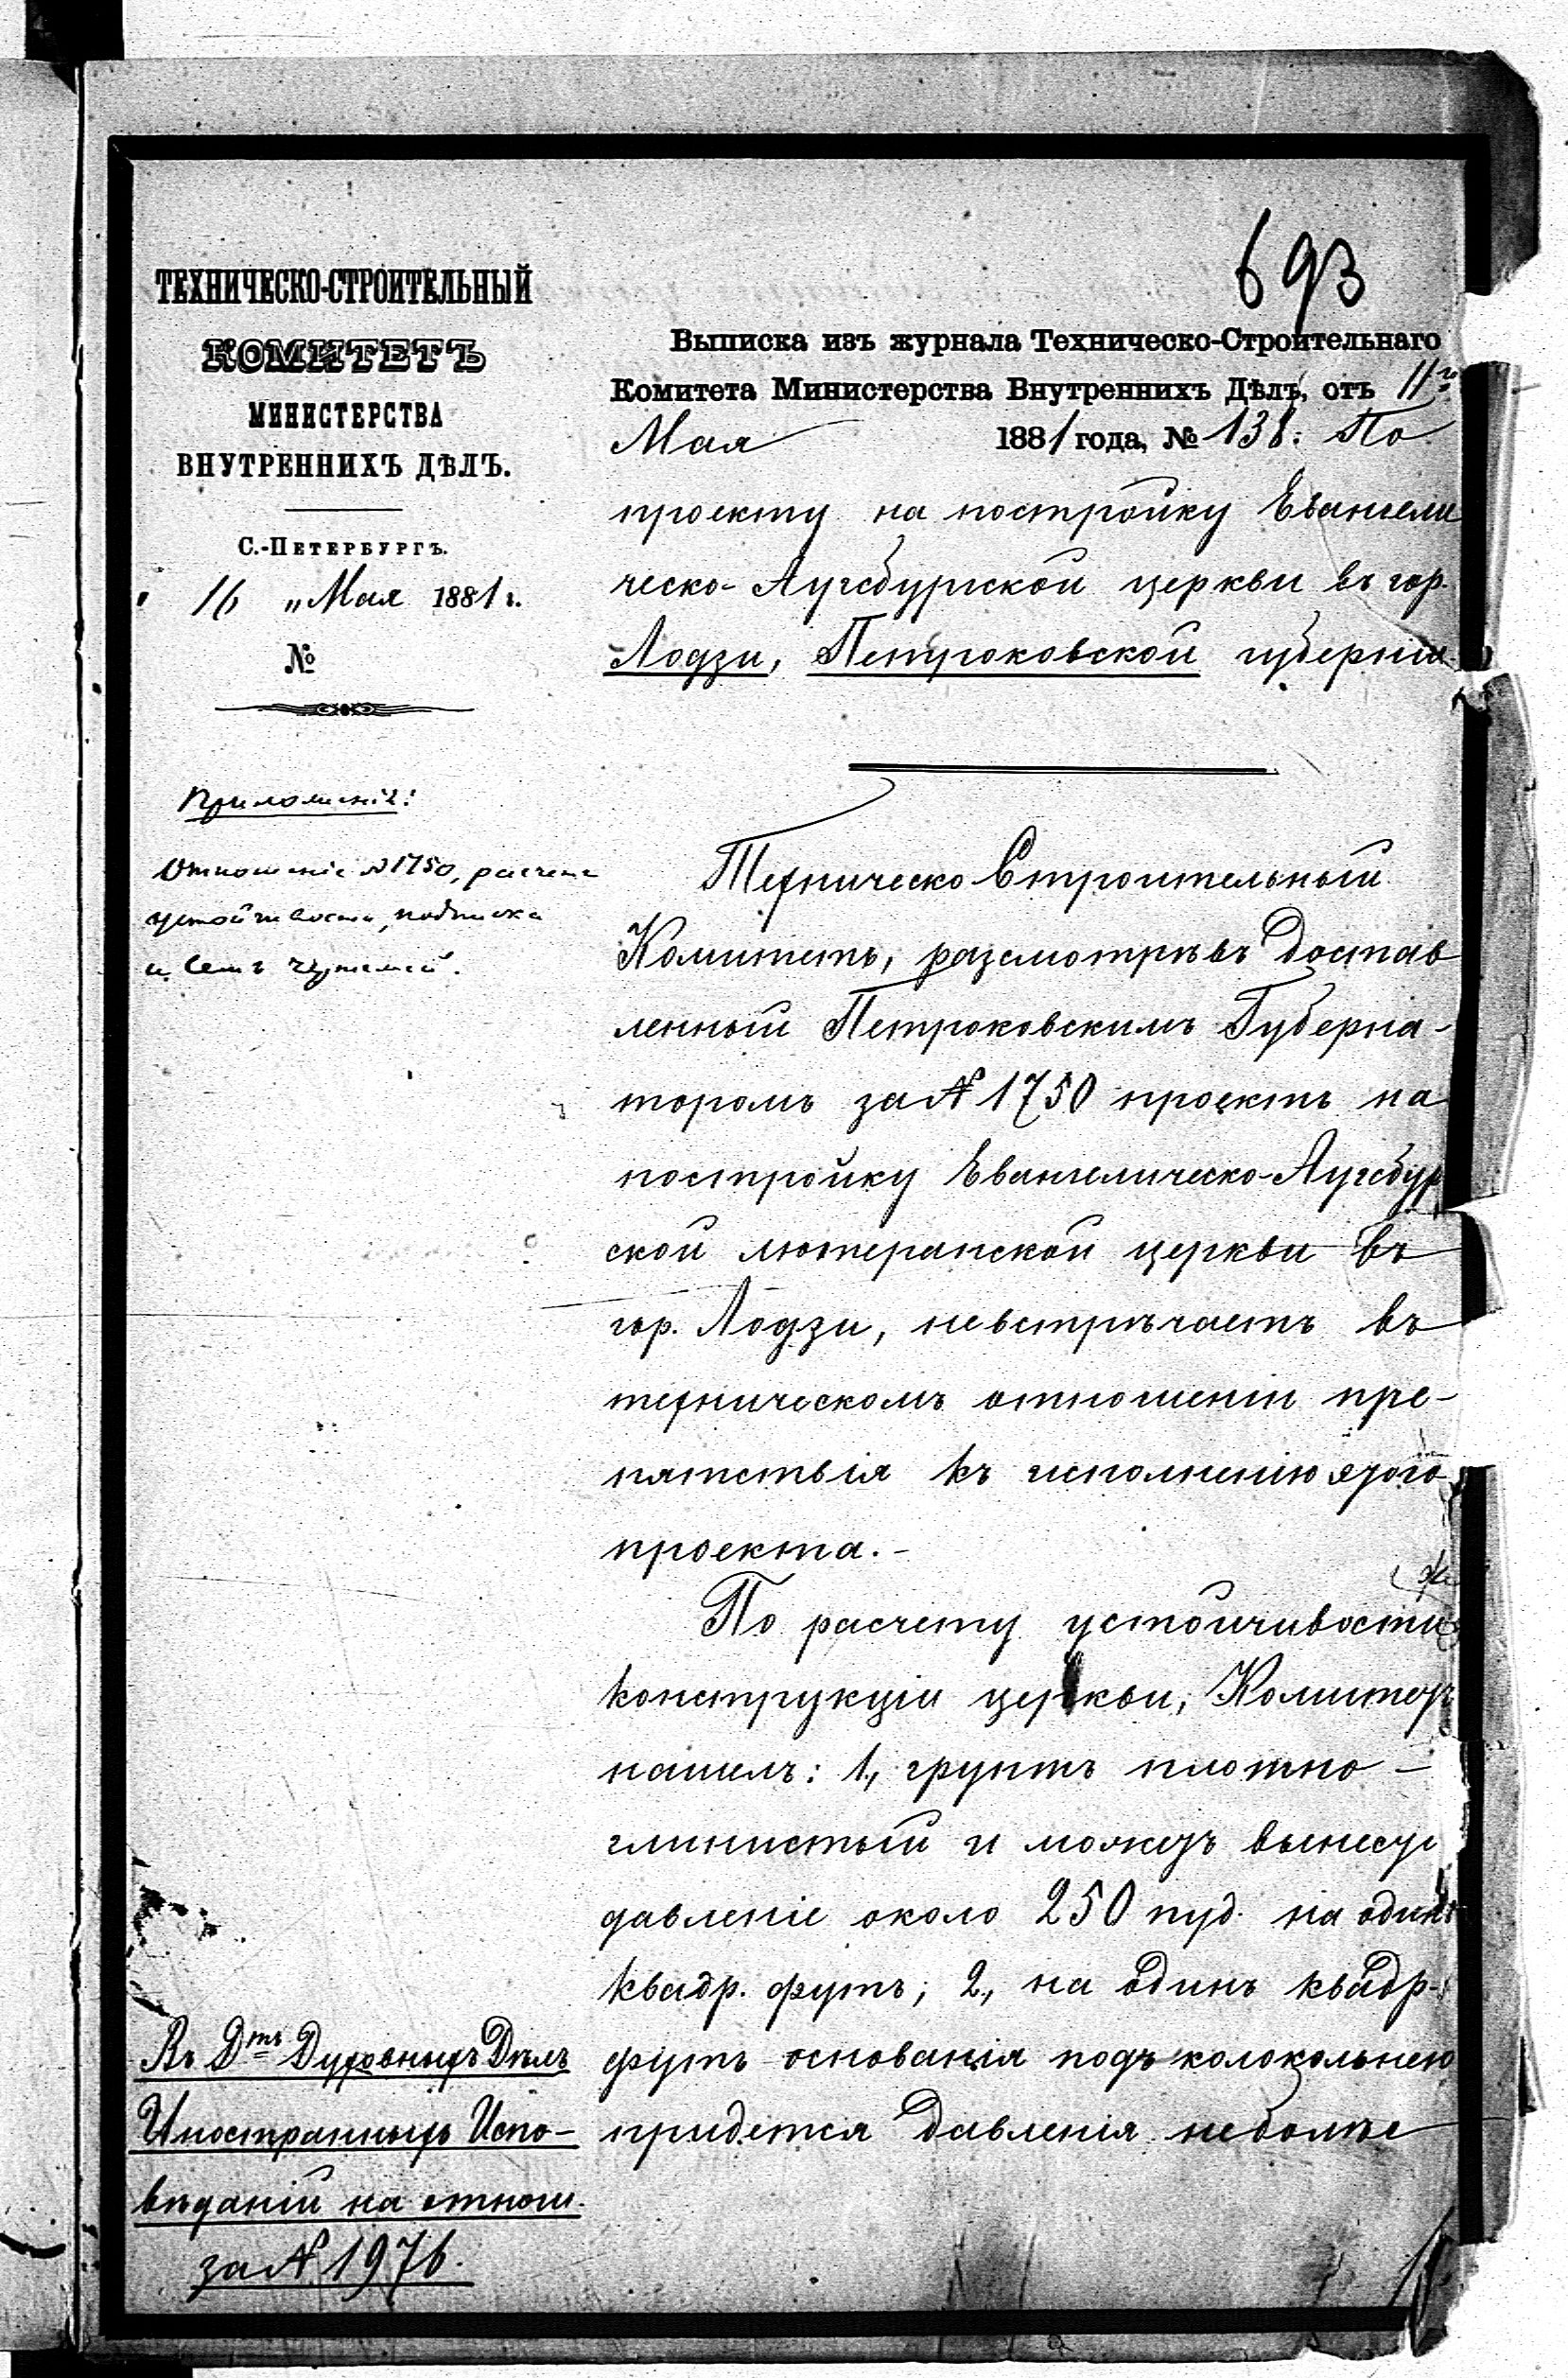 ТЕХНИЧЕСКО-СТРОИТЕЛЬНЫЙ
КОМИТЕТЪ
МИНИСТЕРСТВА
ВНУТРЕННИХЪ ДѢЛЪ.
С.-ПЕТЕРБУРГЪ.
16 „ Мая 1881 г.
№
Приложенія:
Отношеніе № 1750, расчетъ
устойчивости, подписка
и семь чертежей.
Въ Д-тъ Духовныхъ Дѣлъ
Иностранныхъ Испо-
вѣданій на отнош.
за № 1976.
693
Выписка изъ журнала Техническо-Строительнаго
Комитета Министерства Внутреннихъ Дѣлъ, отъ 11го
Мая 1881 года, № 138: По
проекту на постройку Евангели
ческо-Аугсбургской церкви въ гор.
Лодзи, Петроковской губерніи.
Техническо Строительный
Комитетъ, разсмотрѣвъ достав
ленный Петроковскимъ Губерна-
торомъ за № 1750 проектъ на
постройку Евангелическо-Аугсбург
ской лютеранской церкви въ
гор. Лодзи, невстрѣчаетъ въ
техническомъ отношеніи пре-
пятствія къ исполненію этого
проекта.-
По расчету устойчивости
конструкціи церкви, Комитетъ
нашелъ: 1., грунтъ плотно-
глинистый и можетъ вынести
давленіе около 250 пуд. на одинъ
квадр. футъ; 2., на одинъ квадр.
футъ основанія подъ колокольнею
придется давленія неболѣе